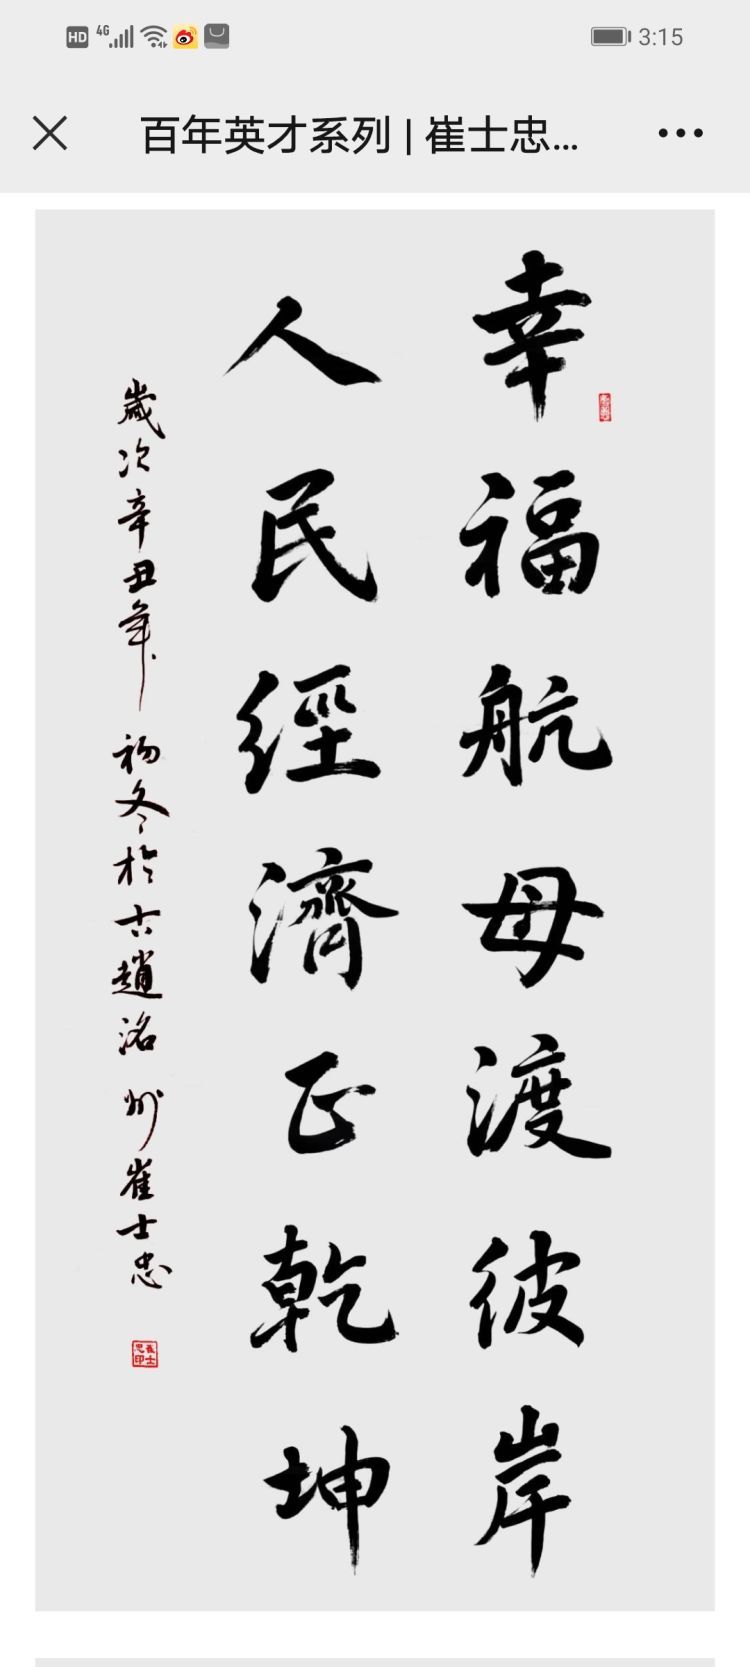 HD 4G 3:15
百年英才系列 | 崔士忠...
幸福航母渡彼岸
人民經濟正乾坤
歲次辛丑年初冬於古趙洺州崔士忠
崔士忠印